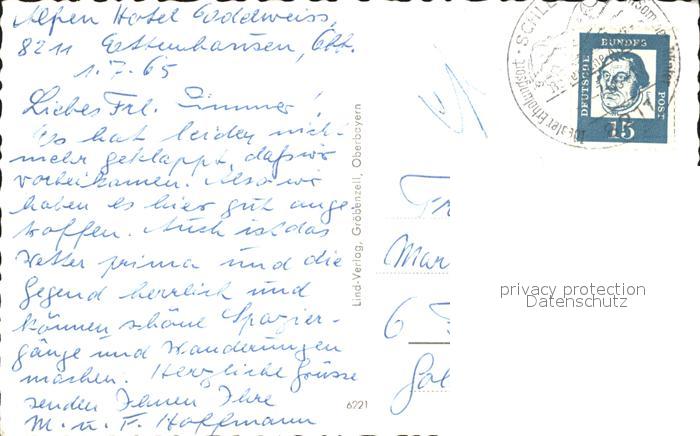 Alpen Hotel Edelweiss,
8211 Ettenhausen, Obb.
1.7.65
Liebes Frl. Simmer!
Es hat leider nicht
mehr geklappt, dass wir
vorbeikamen. Also wir
haben es hier gut ange
troffen. Auch ist das
Wetter prima und die
Gegend herrlich und
können schöne Spazier-
gänge und Wanderungen
machen. Herzliche Grüsse
senden Ihnen Ihre
M. u. F. Hoffmann
Lind-Verlag, Gröbenzell, Oberbayern
6221
DEUTSCHE BUNDES POST
15
Fr
Mar
6
privacy protection
Datenschutz